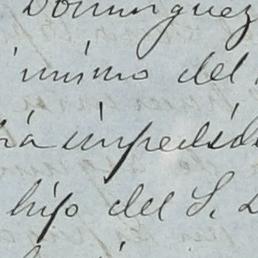 Dominguez
inimo del
ia impedid
hijo del S.